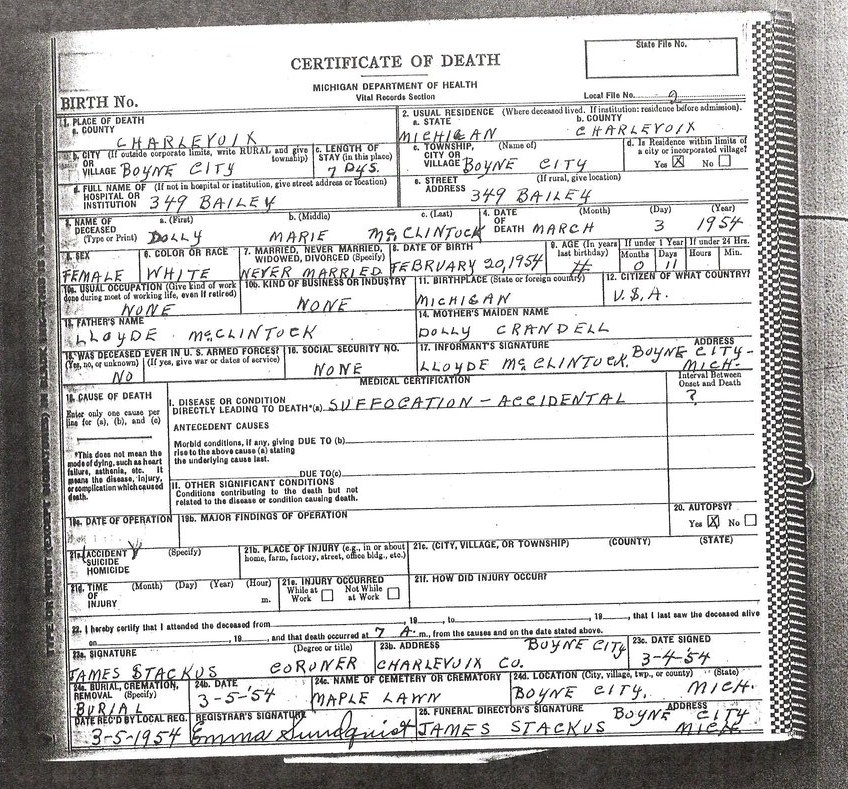 State File No.
CERTIFICATE OF DEATH
MICHIGAN DEPARTMENT OF HEALTH
Vital Records Section
Local File No. 9
BIRTH No.
1. PLACE OF DEATH
a. COUNTY
CHARLEVOIX
2. USUAL RESIDENCE (Where deceased lived. If institution: residence before admission).
a. STATE
MICHIGAN
b. COUNTY
CHARLEVOIX
b. CITY (If outside corporate limits, write RURAL and give
OR township)
VILLAGE BOYNE CITY
c. LENGTH OF
STAY (in this place)
7 DYS.
c. TOWNSHIP, (Name of)
CITY OR
VILLAGE BOYNE CITY
d. Is Residence within limits of
a city or incorporated village?
Yes X No
d. FULL NAME OF (If not in hospital or institution, give street address or location)
HOSPITAL OR
INSTITUTION 349 BAILEY
e. STREET (If rural, give location)
ADDRESS 349 BAILEY
3. NAME OF
DECEASED
(Type or Print)
a. (First)
DOLLY
b. (Middle)
MARIE
c. (Last)
McCLINTOCK
4. DATE
OF
DEATH
(Month) (Day) (Year)
MARCH 3 1954
5. SEX
FEMALE
6. COLOR OR RACE
WHITE
7. MARRIED, NEVER MARRIED,
WIDOWED, DIVORCED (Specify)
NEVER MARRIED
8. DATE OF BIRTH
FEBRUARY 20, 1954
9. AGE (In years
last birthday)
If under 1 Year
Months Days
0 11
If under 24 Hrs.
Hours Min.
10a. USUAL OCCUPATION (Give kind of work
done during most of working life, even if retired)
NONE
10b. KIND OF BUSINESS OR INDUSTRY
NONE
11. BIRTHPLACE (State or foreign country)
MICHIGAN
12. CITIZEN OF WHAT COUNTRY?
U.S.A.
13. FATHER'S NAME
LLOYDE McCLINTOCK
14. MOTHER'S MAIDEN NAME
DOLLY CRANDELL
15. WAS DECEASED EVER IN U. S. ARMED FORCES?
(Yes, no, or unknown) (If yes, give war or dates of service)
NO
16. SOCIAL SECURITY NO.
NONE
17. INFORMANT'S SIGNATURE ADDRESS
LLOYDE McCLINTOCK, BOYNE CITY-
MICH.
MEDICAL CERTIFICATION
Interval Between
Onset and Death
?
18. CAUSE OF DEATH
Enter only one cause per
line for (a), (b), and (c)
*This does not mean the
mode of dying, such as heart
failure, asthenia, etc. It
means the disease, injury,
or complication which caused
death.
I. DISEASE OR CONDITION
DIRECTLY LEADING TO DEATH*(a) SUFFOCATION - ACCIDENTAL
ANTECEDENT CAUSES
Morbid conditions, if any, giving DUE TO (b)
rise to the above cause (a) stating
the underlying cause last.
DUE TO (c)
II. OTHER SIGNIFICANT CONDITIONS
Conditions contributing to the death but not
related to the disease or condition causing death.
19a. DATE OF OPERATION
19b. MAJOR FINDINGS OF OPERATION
20. AUTOPSY?
Yes X No
21a. ACCIDENT (Specify)
SUICIDE
HOMICIDE
21b. PLACE OF INJURY (e.g., in or about
home, farm, factory, street, office bldg., etc.)
21c. (CITY, VILLAGE, OR TOWNSHIP) (COUNTY) (STATE)
21d. TIME (Month) (Day) (Year) (Hour)
OF
INJURY m.
21e. INJURY OCCURRED
While at Not While
Work at Work
21f. HOW DID INJURY OCCUR?
22. I hereby certify that I attended the deceased from , 19 , to , 19 , that I last saw the deceased alive
on , 19 , and that death occurred at 7 A. m., from the causes and on the date stated above.
23a. SIGNATURE (Degree or title)
JAMES STACKUS CORONER
23b. ADDRESS BOYNE CITY
CHARLEVOIX CO.
23c. DATE SIGNED
3-4-'54
24a. BURIAL, CREMATION,
REMOVAL (Specify)
BURIAL
24b. DATE
3-5-'54
24c. NAME OF CEMETERY OR CREMATORY
MAPLE LAWN
24d. LOCATION (City, village, twp., or county) (State)
BOYNE CITY, MICH.
DATE REC'D BY LOCAL REG.
3-5-1954
REGISTRAR'S SIGNATURE
Emma Sundquist
25. FUNERAL DIRECTOR'S SIGNATURE ADDRESS
JAMES STACKUS BOYNE CITY
MICH.